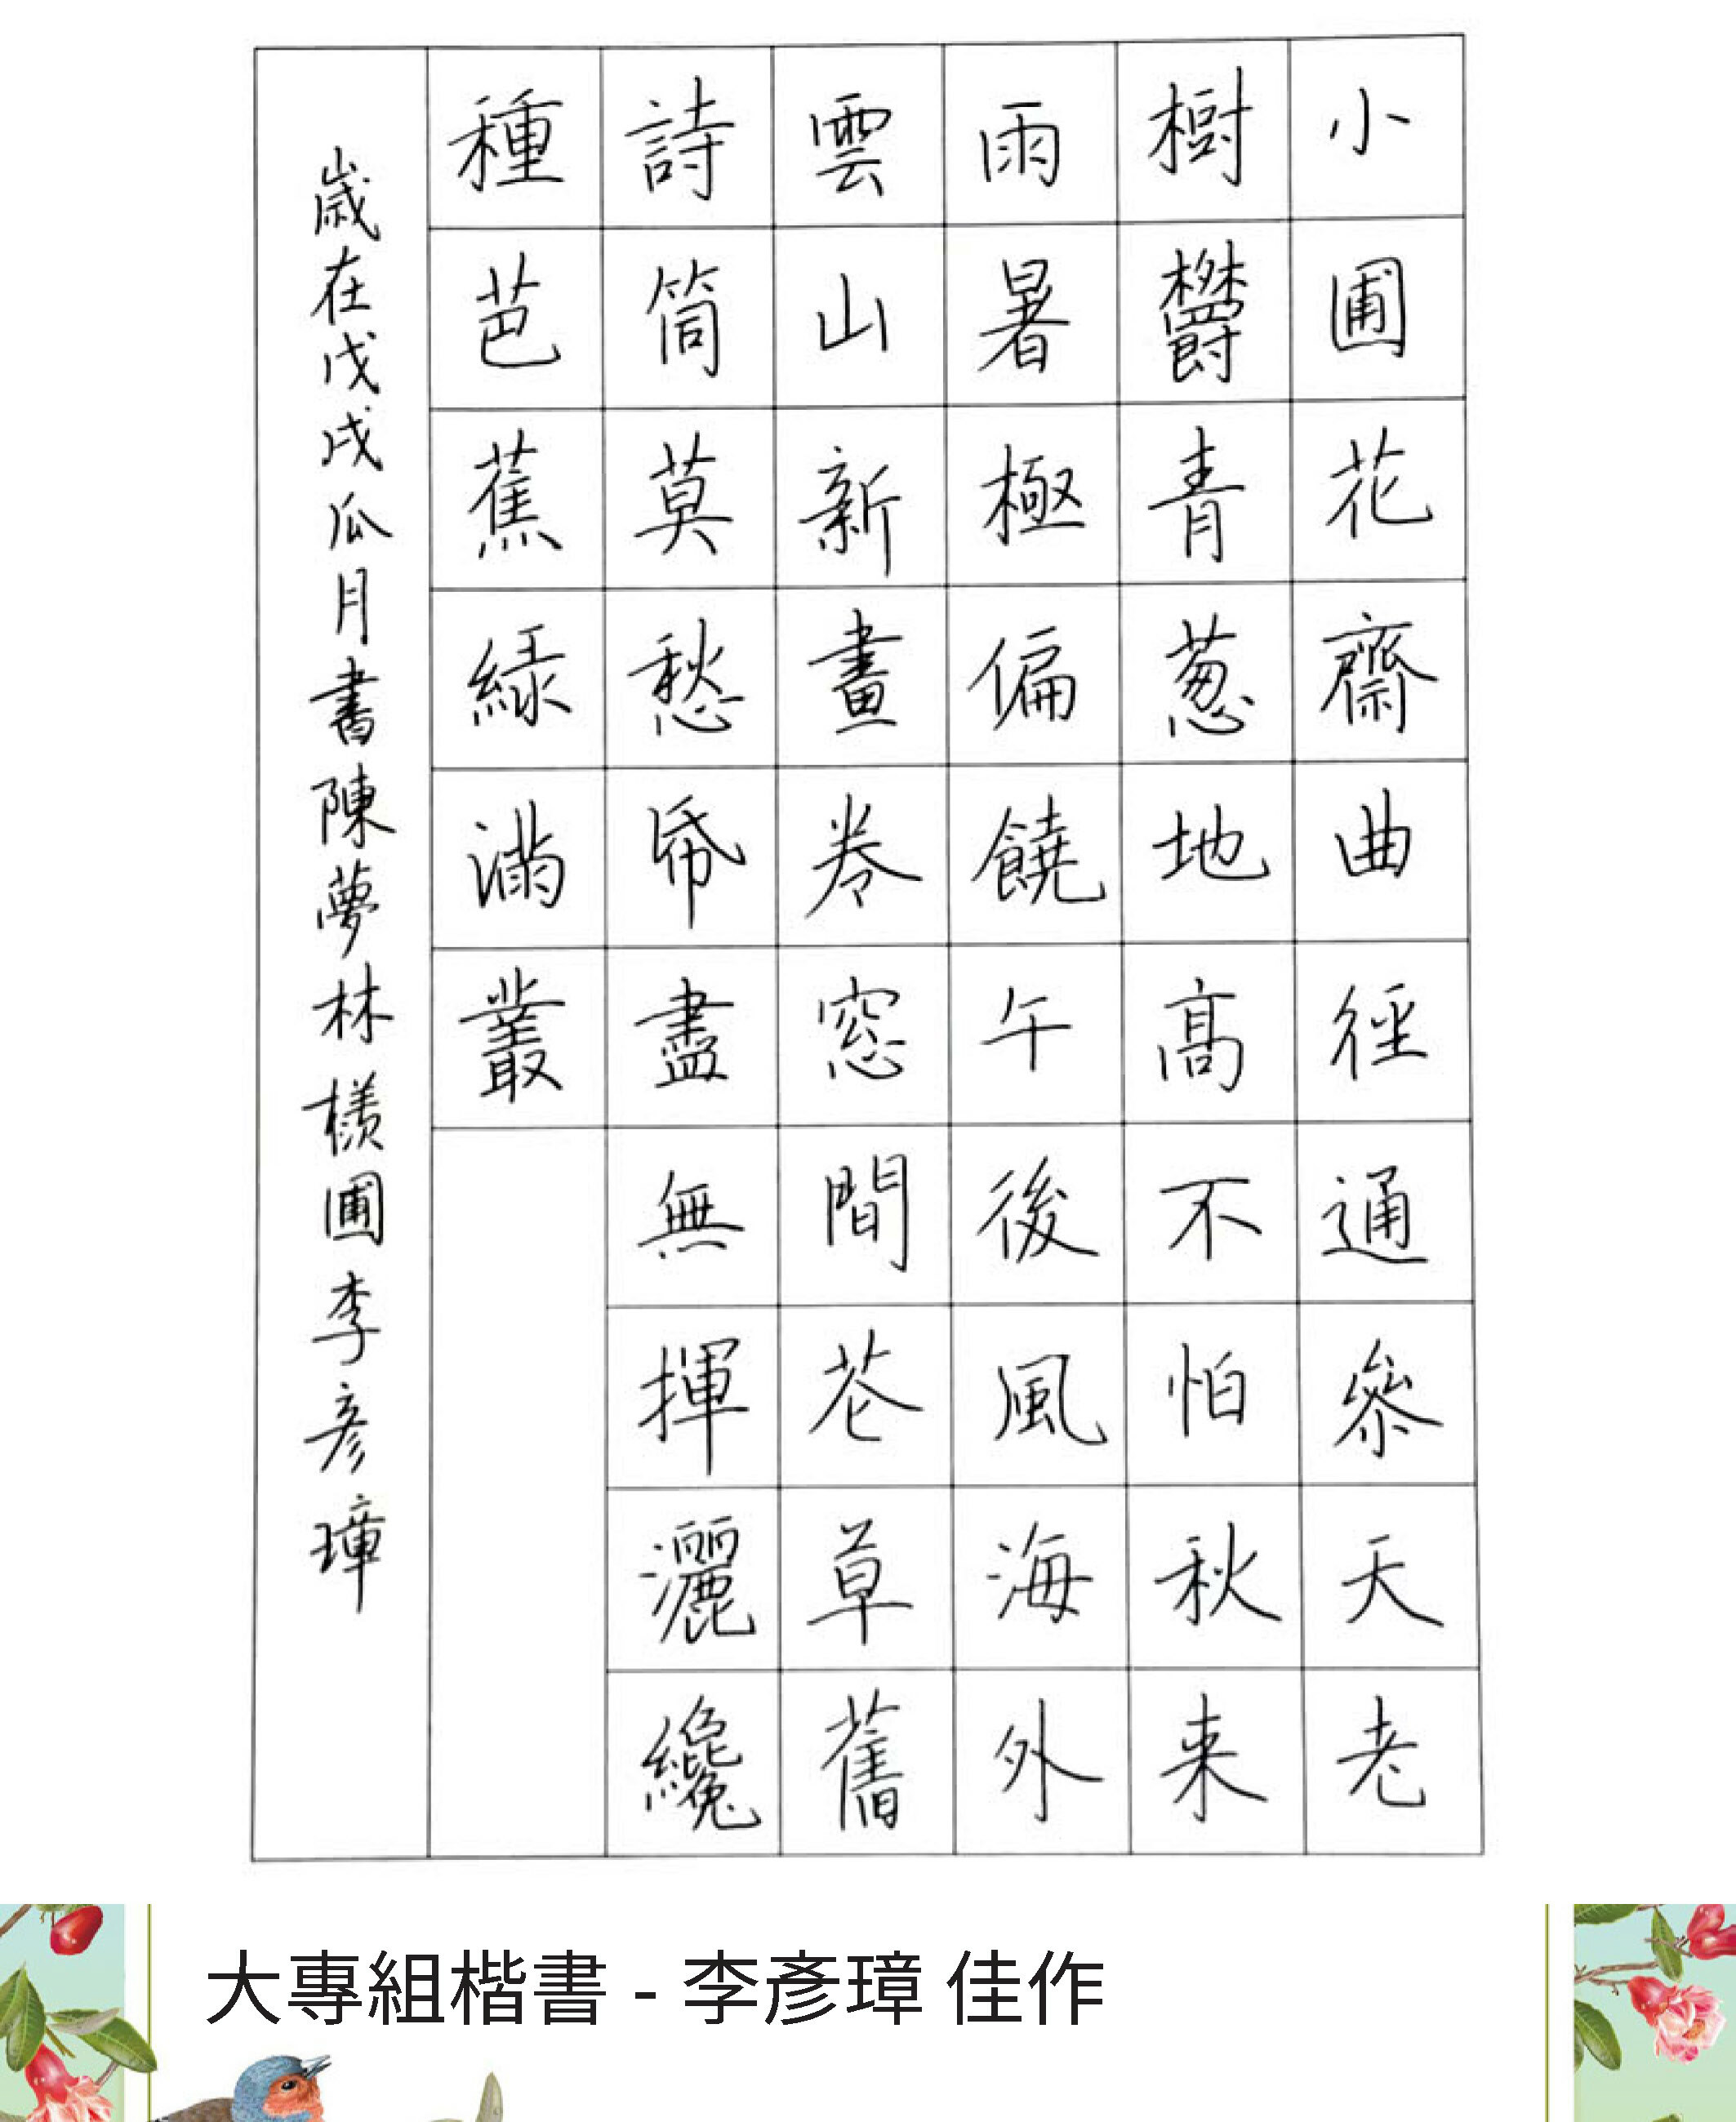 小圃花齋曲徑通參天老
樹鬱青葱地高不怕秋来
雨暑極偏饒午後風海外
雲山新畫卷窓間花草舊
詩筒莫愁帋盡無揮灑纔
種芭蕉緑滿叢
歲在戊戌瓜月書陳夢林樣圃李彥璋
大專組楷書 - 李彥璋 佳作